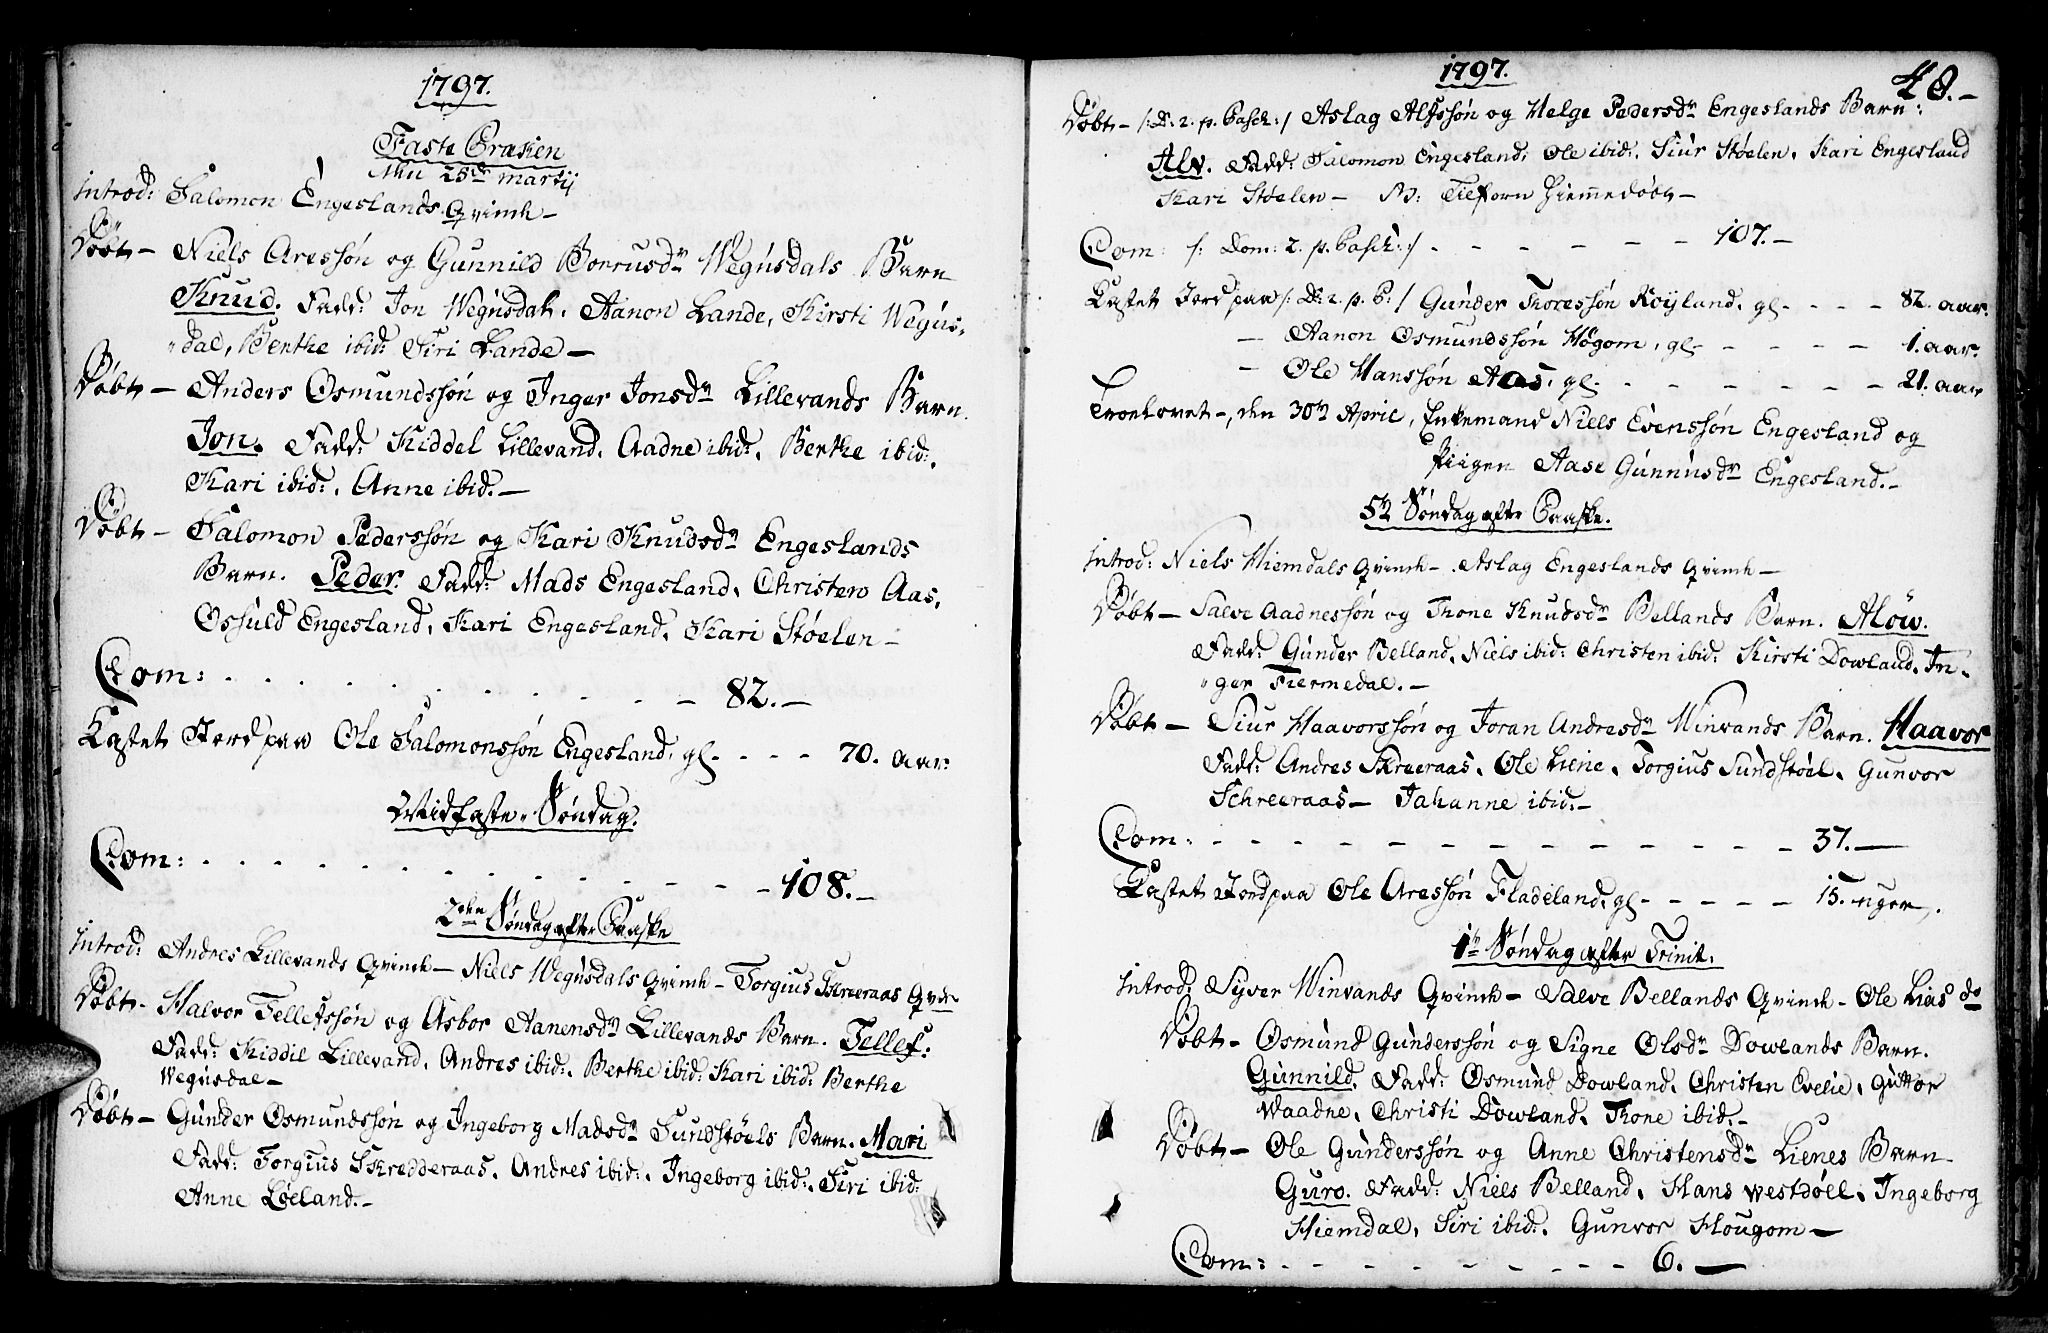 1797.
Faste Præken
25de martij
Introd: Salomon Engeslands Qvinde –
Døbt – Niels Aresøn og Gunnild Wegusdals Barn
Knud. Fadd: Jon Wegusdal, Aanon Lande, Kirsti Wegus-
dal, Berthe ibid: Siri Lande –
Døbt – Anders Osmundssøn og Inger Jonsdr Lillevands Barn.
Jon. Fadd: Kiddel Lillevand, Aadne ibid:, Berthe ibid:,
Kari ibid:, Anne ibid. –
Døbt – Salomon Pederssøn og Kari Knudsdr Engeslands
Barn. Peder. Fadd: Mads Engesland, Christen Aas,
Osfuld Engesland, Kari Engesland, Kari Støelen –
Com: . . . . . . . . . . – – 82. –
Kastet Jord paa Ole Salomonssøn Engesland, gl – – – – 70. aar.
Midfaste Søndag.
Com: . . . . . . . . . – – – – 108. –
2den Søndag efter Paaske
Introd: Andres Lillevands Qvinde – Niels Wegusdals Qvinde – Torgius Skreeraas
Døbt – Halvor Tellefssøn og Asbor Aanensdr Lillevands Barn. Tellef:
Fadd: Kiddil Lillevand, Andres ibid:, Berthe ibid: Kari ibid: Berthe
Wegusdal –
Døbt – Gunder Osmundssøn og Ingeborg Madsdr Sundstøels Barn. Mari
Fadd: Torgius Skredderaas, Andres ibid:, Ingeborg ibid:, Siri ibid:
Anne Løeland. –
1797. 40. –
Døbt – /: D: 2. p. Pasch :/ Aslag Alfssøn og Helge Pedersdr Engeslands Barn:
Alv. Fadd: Salomon Engesland, Ole ibid:, Siur Støelen, Kari Engesland
Kari Støelen – Tilforn Hiemmedøbt –
Com: /: Dom: 2. p. Pasch: :/ – – – – – – 107. –
Kastet Jord paa /: D: 2. p. P: :/ Gunder Toressøn Røyland, gl – – – – 82. aar.
– Aanon Osmundssøn Høgom, gl – – – – – 1. aar.
– Ole Hanssøn Aas, gl – – – – – – – 21. aar
Troelovet –, den 30te April, Enkemand Niels Evenssøn Engesland og
Piigen Aase Gunnusdr Engesland. –
5te Søndag efter Paaske.
Introd: Niels Hiemdals Qvinde – Aslag Engeslands Qvinde –
Døbt – Salve Aadnessøn og Thone Knudsdr Bellands Barn. Aløw.
Fadd: Gunder Belland, Niels ibid: Christen ibid: Kirsti Dowland, In-
ger Fiermedal. –
Døbt – Siur Haavorssøn og Joran Andresdr Winvands Barn. Haavor
Fadd: Andres Skreeraas, Ole Liene, Torgius Sundstøel, Gunvor
Schreeraas – Johanne ibid: –
Com: – – – – – – – – – – – – 37. –
Kastet Jord paa Ole Aressøn Fladeland, gl – – – – – 15. uger.
1te Søndag efter Trinit.
Introd: Syver Winvands Qvinde – Salve Bellands Qvinde – Ole Lias do
Døbt – Osmund Gunderssøn og Signe Olsdr Dowlands Barn.
Gunnild, Fadd: Osmund Dowland, Christen Evelie, Guttor
Waadne, Christi Dowland, Thone ibid. –
Døbt – Ole Gunderssøn og Anne Christensdr Lienes Barn
Guro. Fadd: Niels Belland, Hans Westdøel, Ingeborg
Hiemdal, Siri ibid:, Gunvor Hougom –
Com: – – – – – – – – 6. –